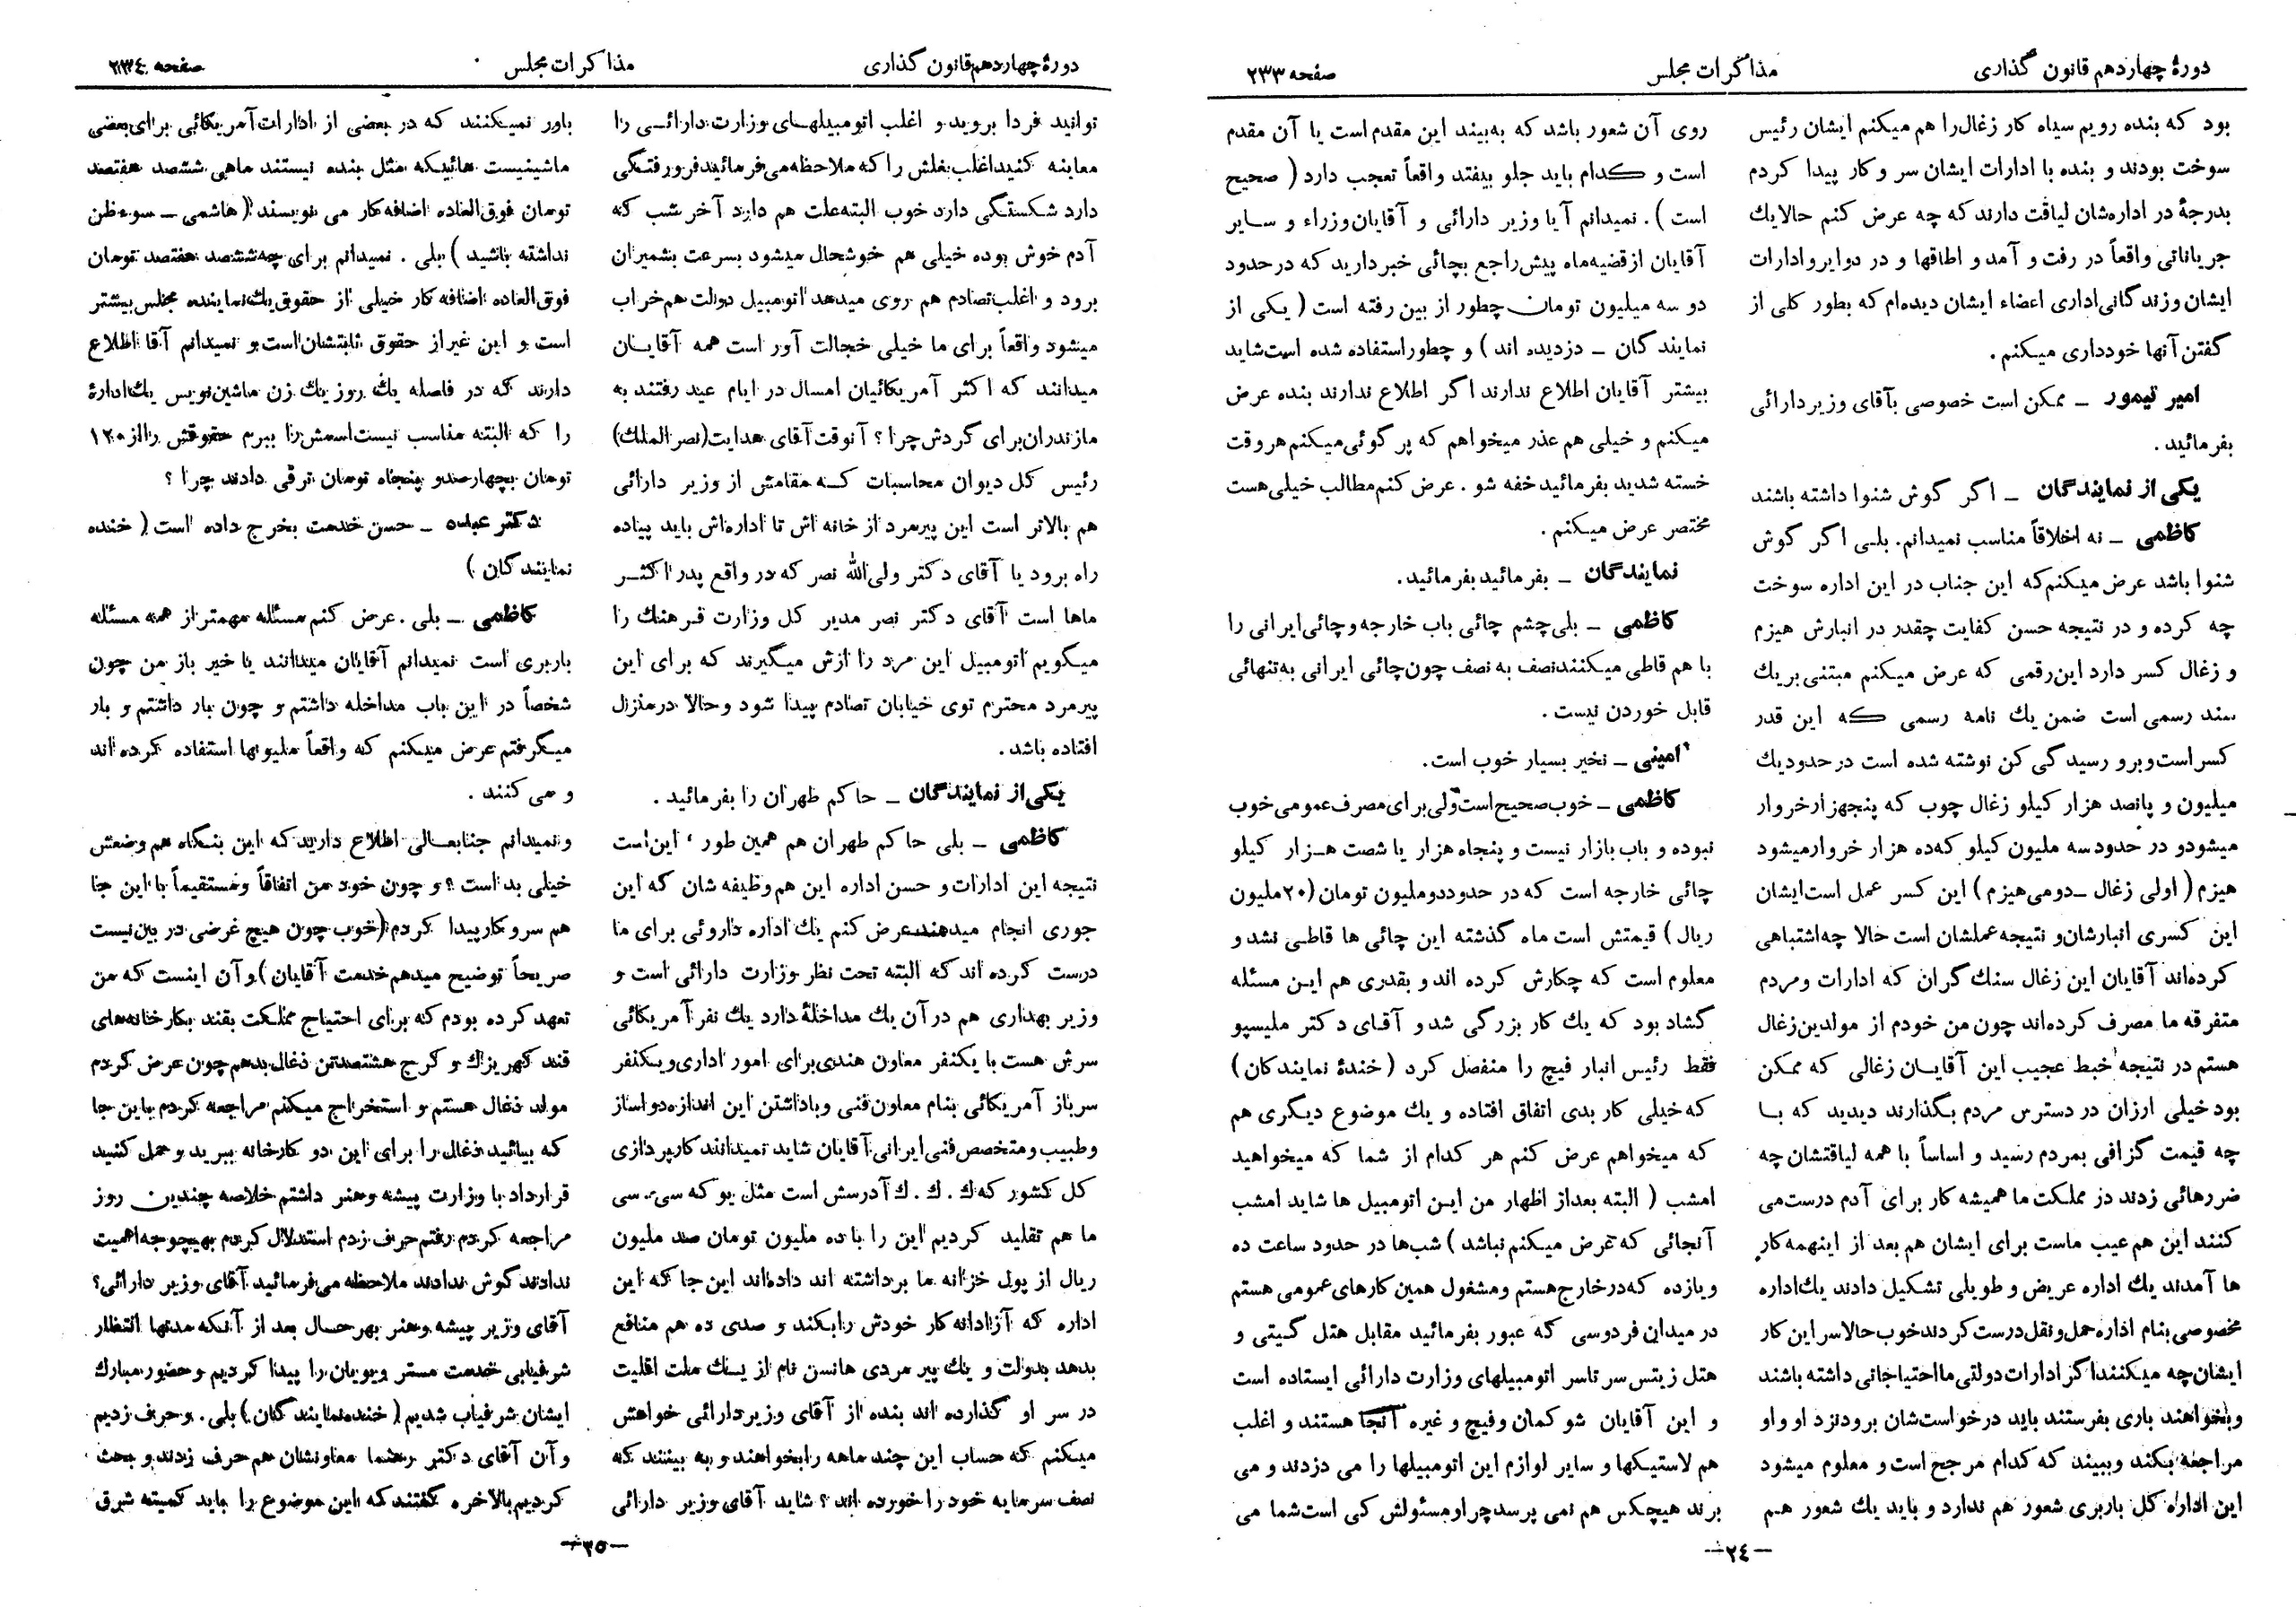 دورهٔ چهاردهم قانون گذاری
مذاکرات مجلس
صفحه ۲۳۳
بود که بنده رویم سیاه کار زغال را هم میکنم ایشان رئیس
سوخت بودند و بنده با ادارات ایشان سر و کار پیدا کردم
بدرجهٔ در اداره‌شان لیاقت دارند که چه عرض کنم حالا یك
جریاناتی واقعاً در رفت و آمد و اطاقها و در دوایر و ادارات
ایشان وزندگانی اداری اعضاء ایشان دیده‌ام که بطور کلی از
گفتن آنها خودداری میکنم.
امیر تیمور ـ ممکن است خصوصی بآقای وزیر دارائی
بفرمائید.
یکی از نمایندگان ـ اگر گوش شنوا داشته باشند
کاظمی ـ نه اخلاقاً مناسب نمیدانم. بلی اگر گوش
شنوا باشد عرض میکنم که این جناب در این اداره سوخت
چه کرده و در نتیجه حسن کفایت چقدر در انبارش هیزم
و زغال کسر دارد این رقمی که عرض میکنم مبتنی بر یك
سند رسمی است ضمن یك نامه رسمی که این قدر
کسر است و برو رسیدگی کن نوشته شده است در حدود یك
میلیون و پانصد هزار کیلو زغال چوب که پنجهزار خروار
میشود و در حدود سه ملیون کیلو که ده هزار خروار میشود
هیزم ( اولی زغال ـ دومی هیزم ) این کسر عمل است ایشان
این کسری انبارشان و نتیجه عملشان است حالا چه اشتباهی
کرده‌اند آقایان این زغال سنك گران که ادارات و مردم
متفرقه ما مصرف کرده‌اند چون من خودم از مولدین زغال
هستم در نتیجه خبط عجیب این آقایان زغالی که ممکن
بود خیلی ارزان در دسترس مردم بگذارند دیدید که با
چه قیمت گزافی بمردم رسید و اساساً با همه لیاقتشان چه
ضررهائی زدند در مملکت ما همیشه کار برای آدم درست می
کنند این هم عیب ماست برای ایشان هم بعد از اینهمه کار
ها آمدند یك اداره عریض و طویلی تشکیل دادند یك اداره
مخصوصی بنام اداره حمل و نقل درست کردند خوب حالا سر این کار
ایشان چه میکنند اگر ادارات دولتی ما احتیاجاتی داشته باشند
و بخواهند باری بفرستند باید درخواست‌شان برود نزد او و او
مراجعه بکند و ببیند که کدام مرجح است و معلوم میشود
این اداره کل باربری شعور هم ندارد و باید یك شعور هم
روی آن شعور باشد که به بیند این مقدم است یا آن مقدم
است و کدام باید جلو بیفتد واقعاً تعجب دارد ( صحیح
است ) . نمیدانم آیا وزیر دارائی و آقایان وزراء و سایر
آقایان از قضیه ماه پیش راجع بچائی خبر دارید که در حدود
دو سه میلیون تومان چطور از بین رفته است ( یکی از
نمایندگان ـ دزدیده اند ) و چطور استفاده شده است شاید
بیشتر آقایان اطلاع ندارند اگر اطلاع ندارند بنده عرض
میکنم و خیلی هم عذر میخواهم که پر گوئی میکنم هر وقت
خسته شدید بفرمائید خفه شو . عرض کنم مطالب خیلی هست
مختصر عرض میکنم .
نمایندگان ـ بفرمائید بفرمائید.
کاظمی ـ بلی چشم چائی باب خارجه و چائی ایرانی را
با هم قاطی میکنند نصف به نصف چون چائی ایرانی به تنهائی
قابل خوردن نیست .
امینی ـ نخیر بسیار خوب است.
کاظمی ـ خوب صحیح است ولی برای مصرف عمومی خوب
نبوده و باب بازار نیست و پنجاه هزار یا شصت هزار کیلو
چائی خارجه است که در حدود دو ملیون تومان (۲۰ ملیون
ریال ) قیمتش است ماه گذشته این چائی ها قاطی نشد و
معلوم است که چکارش کرده اند و بقدری هم این مسئله
گشاد بود که یك کار بزرگی شد و آقای دکتر ملیسپو
فقط رئیس انبار فیچ را منفصل کرد ( خندهٔ نمایندگان )
که خیلی کار بدی اتفاق افتاده و یك موضوع دیگری هم
که میخواهم عرض کنم هر کدام از شما که میخواهید
امشب ( البته بعد از اظهار من این اتومبیل ها شاید امشب
آنجائی که عرض میکنم نباشد ) شب‌ها در حدود ساعت ده
و یازده که در خارج هستم و مشغول همین کارهای عمومی هستم
در میدان فردوسی که عبور بفرمائید مقابل هتل گیتی و
هتل زیتس سر تاسر اتومبیلهای وزارت دارائی ایستاده است
و این آقایان شوکمان وفیچ و غیره آنجا هستند و اغلب
هم لاستیکها و سایر لوازم این اتومبیلها را می دزدند و می
برند هیچکس هم نمی پرسد چرا و مسئولش کی است شما می
ـ ۲٤ ـ
دورهٔ چهاردهم قانون گذاری
مذاکرات مجلس
صفحه ۲۳٤
توانید فردا بروید و اغلب اتومبیلهای وزارت دارائی را
معاینه کنید اغلب بغلش را که ملاحظه می فرمائید فرورفتگی
دارد شکستگی دارد خوب البته علت هم دارد آخر شب که
آدم خوش بوده خیلی هم خوشحال میشود بسرعت بشمیران
برود و اغلب تصادم هم روی میدهد اتومبیل دولت هم خراب
میشود واقعاً برای ما خیلی خجالت آور است همه آقایان
میدانند که اکثر آمریکائیان امسال در ایام عید رفتند به
مازندران برای گردش چرا ؟ آنوقت آقای هدایت (نصرالملك)
رئیس کل دیوان محاسبات که مقامش از وزیر دارائی
هم بالاتر است این پیرمرد از خانه اش تا اداره‌اش باید پیاده
راه برود یا آقای دکتر ولی‌الله نصر که در واقع پدر اکثر
ماها است آقای دکتر نصر مدیر کل وزارت فرهنك را
میگویم اتومبیل این مرد را ازش میگیرند که برای این
پیرمرد محترم توی خیابان تصادم پیدا شود و حالا در منزل
افتاده باشد .
یکی از نمایندگان ـ حاکم طهران را بفرمائید .
کاظمی ـ بلی حاکم طهران هم همین طور ، این است
نتیجه این ادارات و حسن اداره این هم وظیفه شان که این
جوری انجام میدهند عرض کنم یك اداره داروئی برای ما
درست کرده اند که البته تحت نظر وزارت دارائی است و
وزیر بهداری هم در آن یك مداخلهٔ دارد یك نفر آمریکائی
سرش هست با یکنفر معاون هندی برای امور اداری و یکنفر
سرباز آمریکائی بنام معاون فنی و باداشتن این اندازه دواساز
و طبیب و متخصص فنی ایرانی آقایان شاید نمیدانند کارپردازی
کل کشور که ك . ك . ك آدرسش است مثل یو که سی. سی
ما هم تقلید کردیم این را با ده ملیون تومان صد ملیون
ریال از پول خزانه ما برداشته اند داده‌اند این جا که این
اداره که آزادانه کار خودش را بکند و صدی ده هم منافع
بدهد بدولت و یك پیر مردی هانسن نام از یك ملت اقلیت
در سر او گذارده اند بنده از آقای وزیر دارائی خواهش
میکنم که حساب این چند ماهه را بخواهند و به بینند که
نصف سرمایه خود را خورده اند ؟ شاید آقای وزیر دارائی
باور نمیکنند که در بعضی از ادارات آمریکائی برای بعضی
ماشینیست هائیکه مثل بنده نیستند ماهی ششصد هفتصد
تومان فوق‌العاده اضافه کار می نویسند ( هاشمی ـ سوءظن
نداشته باشید ) بلی . نمیدانم برای چه ششصد هفتصد تومان
فوق العاده اضافه کار خیلی از حقوق یك نماینده مجلس بیشتر
است و این غیر از حقوق ثابتشان است و نمیدانم آقا اطلاع
دارند که در فاصله یك روز یك زن ماشین نویس یك ادارهٔ
را که البته مناسب نیست اسمش را ببرم حقوقش را از ۱۲۰
تومان بچهارصد و پنجاه تومان ترقی دادند چرا ؟
دکتر عبده ـ حسن خدمت بخرج داده است ( خنده
نمایندگان )
کاظمی ـ بلی . عرض کنم مسئله مهمتر از همه مسئله
باربری است نمیدانم آقایان میدانند یا خیر باز من چون
شخصاً در این باب مداخله داشتم و چون بار داشتم و بار
میگرفتم عرض میکنم که واقعاً ملیونها استفاده کرده اند
و می کنند .
و نمیدانم جنابعالی اطلاع دارید که این بنگاه هم وضعش
خیلی بد است ؟ و چون خود من اتفاقاً و مستقیماً با این جا
هم سروکار پیدا کردم (خوب چون هیچ غرضی در بین نیست
صریحاً توضیح میدهم خدمت آقایان ) و آن اینست که من
تعهد کرده بودم که برای احتیاج مملکت بقند بکارخانه‌های
قند کهریزك و کرج هشتصد تن ذغال بدهم چون عرض کردم
مولد ذغال هستم و استخراج میکنم مراجعه کردم باین جا
که بیائید ذغال را برای این دو کارخانه ببرید و حمل کنید
قرارداد با وزارت پیشه و هنر داشتم خلاصه چندین روز
مراجعه کردم رفتم حرف زدم استدلال کردم بهیچوجه اهمیت
ندادند گوش ندادند ملاحظه می فرمائید آقای وزیر دارائی؟
آقای وزیر پیشه و هنر بهر حال بعد از آنکه مدتها انتظار
شرفیابی خدمت مستر ویویان را پیدا کردیم و حضور مبارك
ایشان شرفیاب شدیم ( خنده نمایندگان ) بلی. و حرف زدیم
و آن آقای دکتر رهنما معاونشان هم حرف زدند و بحث
کردیم بالاخره گفتند که این موضوع را باید کمیته شرق
ـ ۲٥ ـ